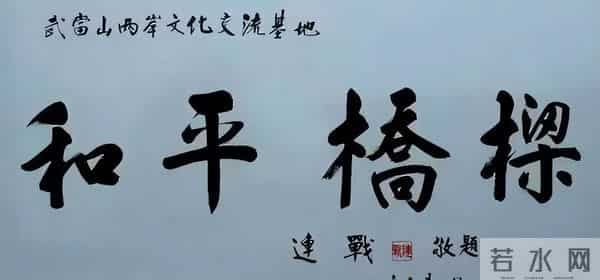 武當山两岸文化交流基地
和平橋樑
連戰 敬題
若水网